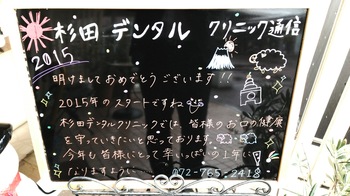 杉田デンタルクリニック通信
2015
明けましておめでとうございます!!
2015年のスタートですね
杉田デンタルクリニックでは、皆様のお口の健康
を守っていきたいと思っております。
今年も皆様にとって幸いっぱいの1年に
なりますように
072-765-2418